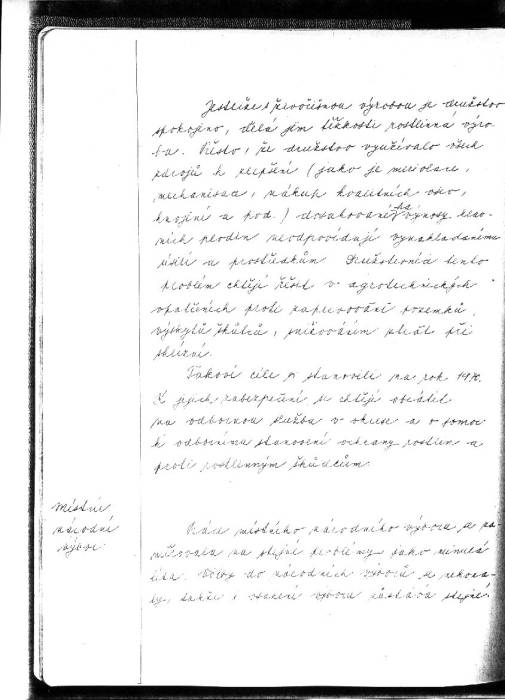 Jestliže s živočišnou výrobou je družstvo
spokojno, dělá jim těžkosti rostlinná výro-
ba. Přesto, že družstvo využívalo všech
zdrojů k zlepšení (jako je meliorace,
mechanisace, nákup kvalitních osiv,
hnojení a pod.) dosahované ha výnosy hlav-
ních plodin neodpovídají vynakládanému
úsilí a prostředkům. Družstevníci tento
problém chtějí řešit v agrotechnických
opatřeních proti zaplevelování pozemků,
výskytů škůdců, snižováním ztrát při
sklizni.
Takové cíle si stanovili na rok 1970.
K jejich zabezpečení se chtějí obrátit
na odbornou službu v okrese a o pomoc
k odbornému stanovení ochrany rostlin a
proti rostlinným škůdcům.
Místní
národní
výbor:
Práce místního národního výboru se za-
měřovala na stejné problémy jako minulá
léta. Volby do národních výborů se nekona-
ly, takže i obsazení výboru zůstává stejné.